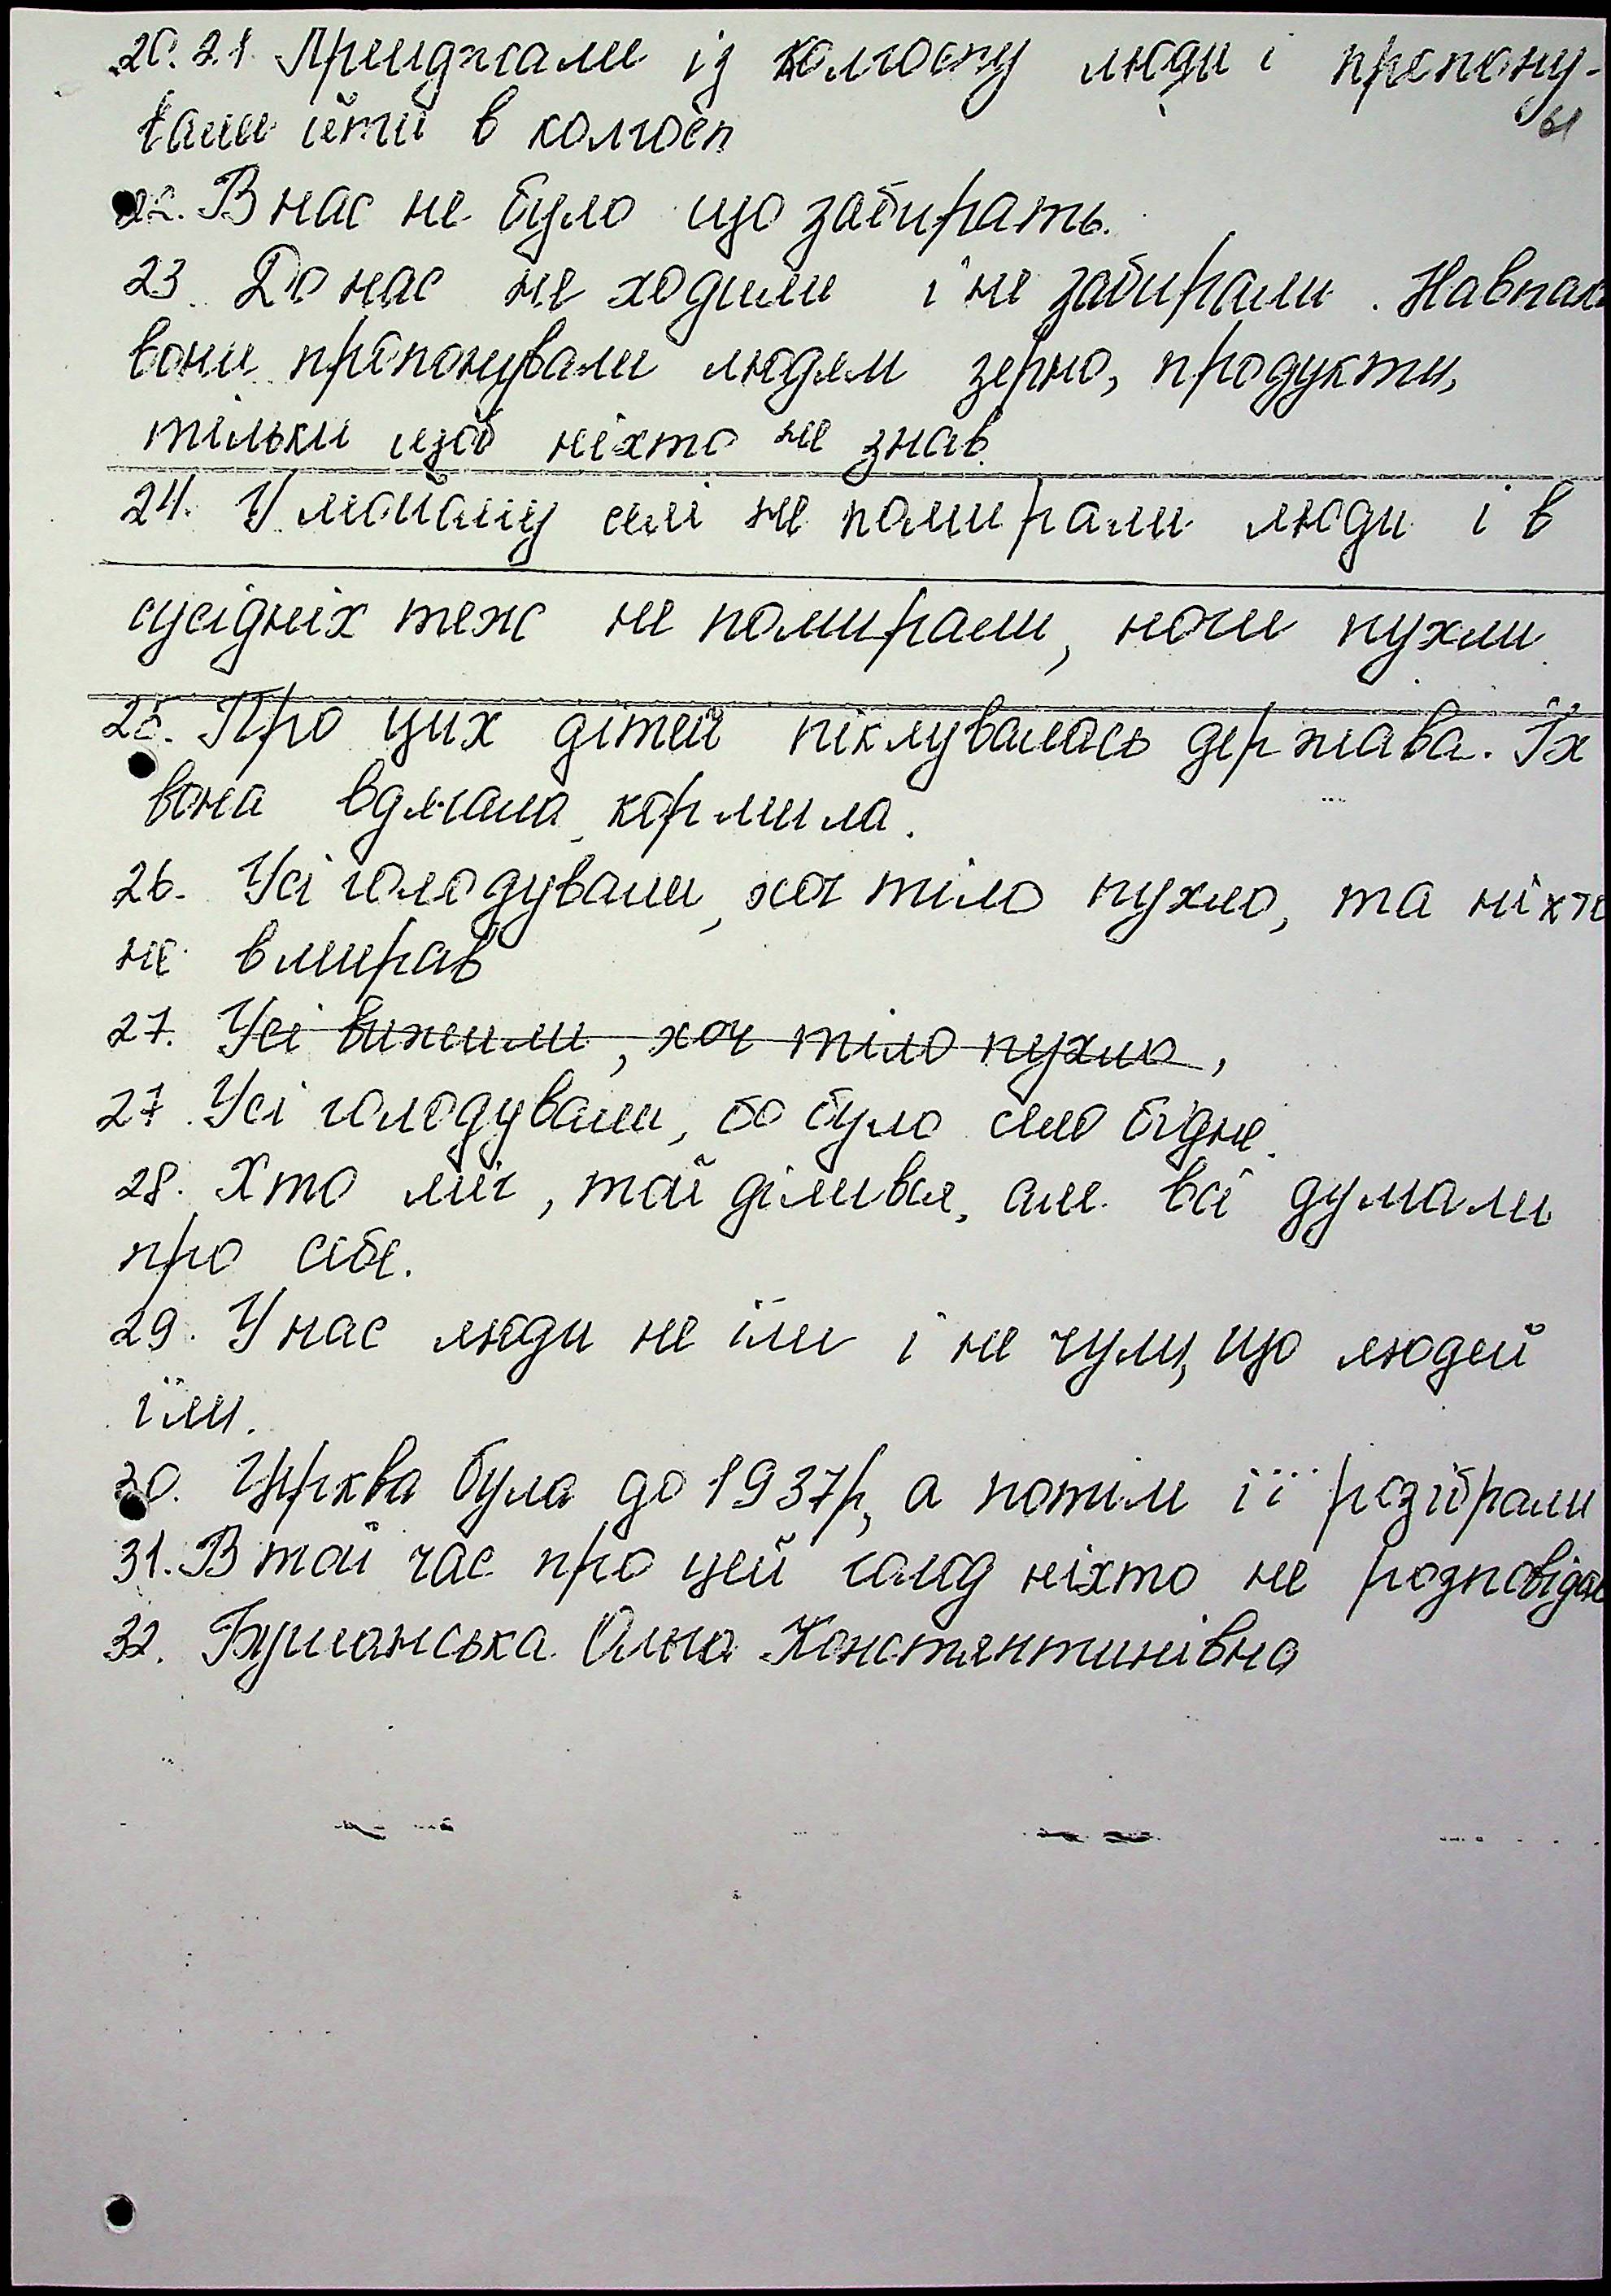 20.21. Приїджали із колгоспу люди і пропону-
вали йти в колгосп
61
22. В нас не було що забирать.
23. До нас не ходили і не забирали. Навпак
вони пропонували людям зерно, продукти,
тільки щоб ніхто не знав.
24. У нашому селі не помирали люди і в
сусідніх теж не помирали, ноги пухли.
25. Про цих дітей піклувалась держава. Їх
вона вдягала, кормила.
26. Усі голодували, хоч тіло пухло, та ніхто
не вмирав
27. Усі вижили, хоч тіло пухло,
27. Усі голодували, бо було село бідне.
28. Хто міг, той ділився, але всі думали
про себе.
29. У нас люди не їли і не чули, що людей
їли.
30. Церква була до 1937р, а потім її розібрали
31. В той час про цей голод ніхто не розповідав
32. Константинівна